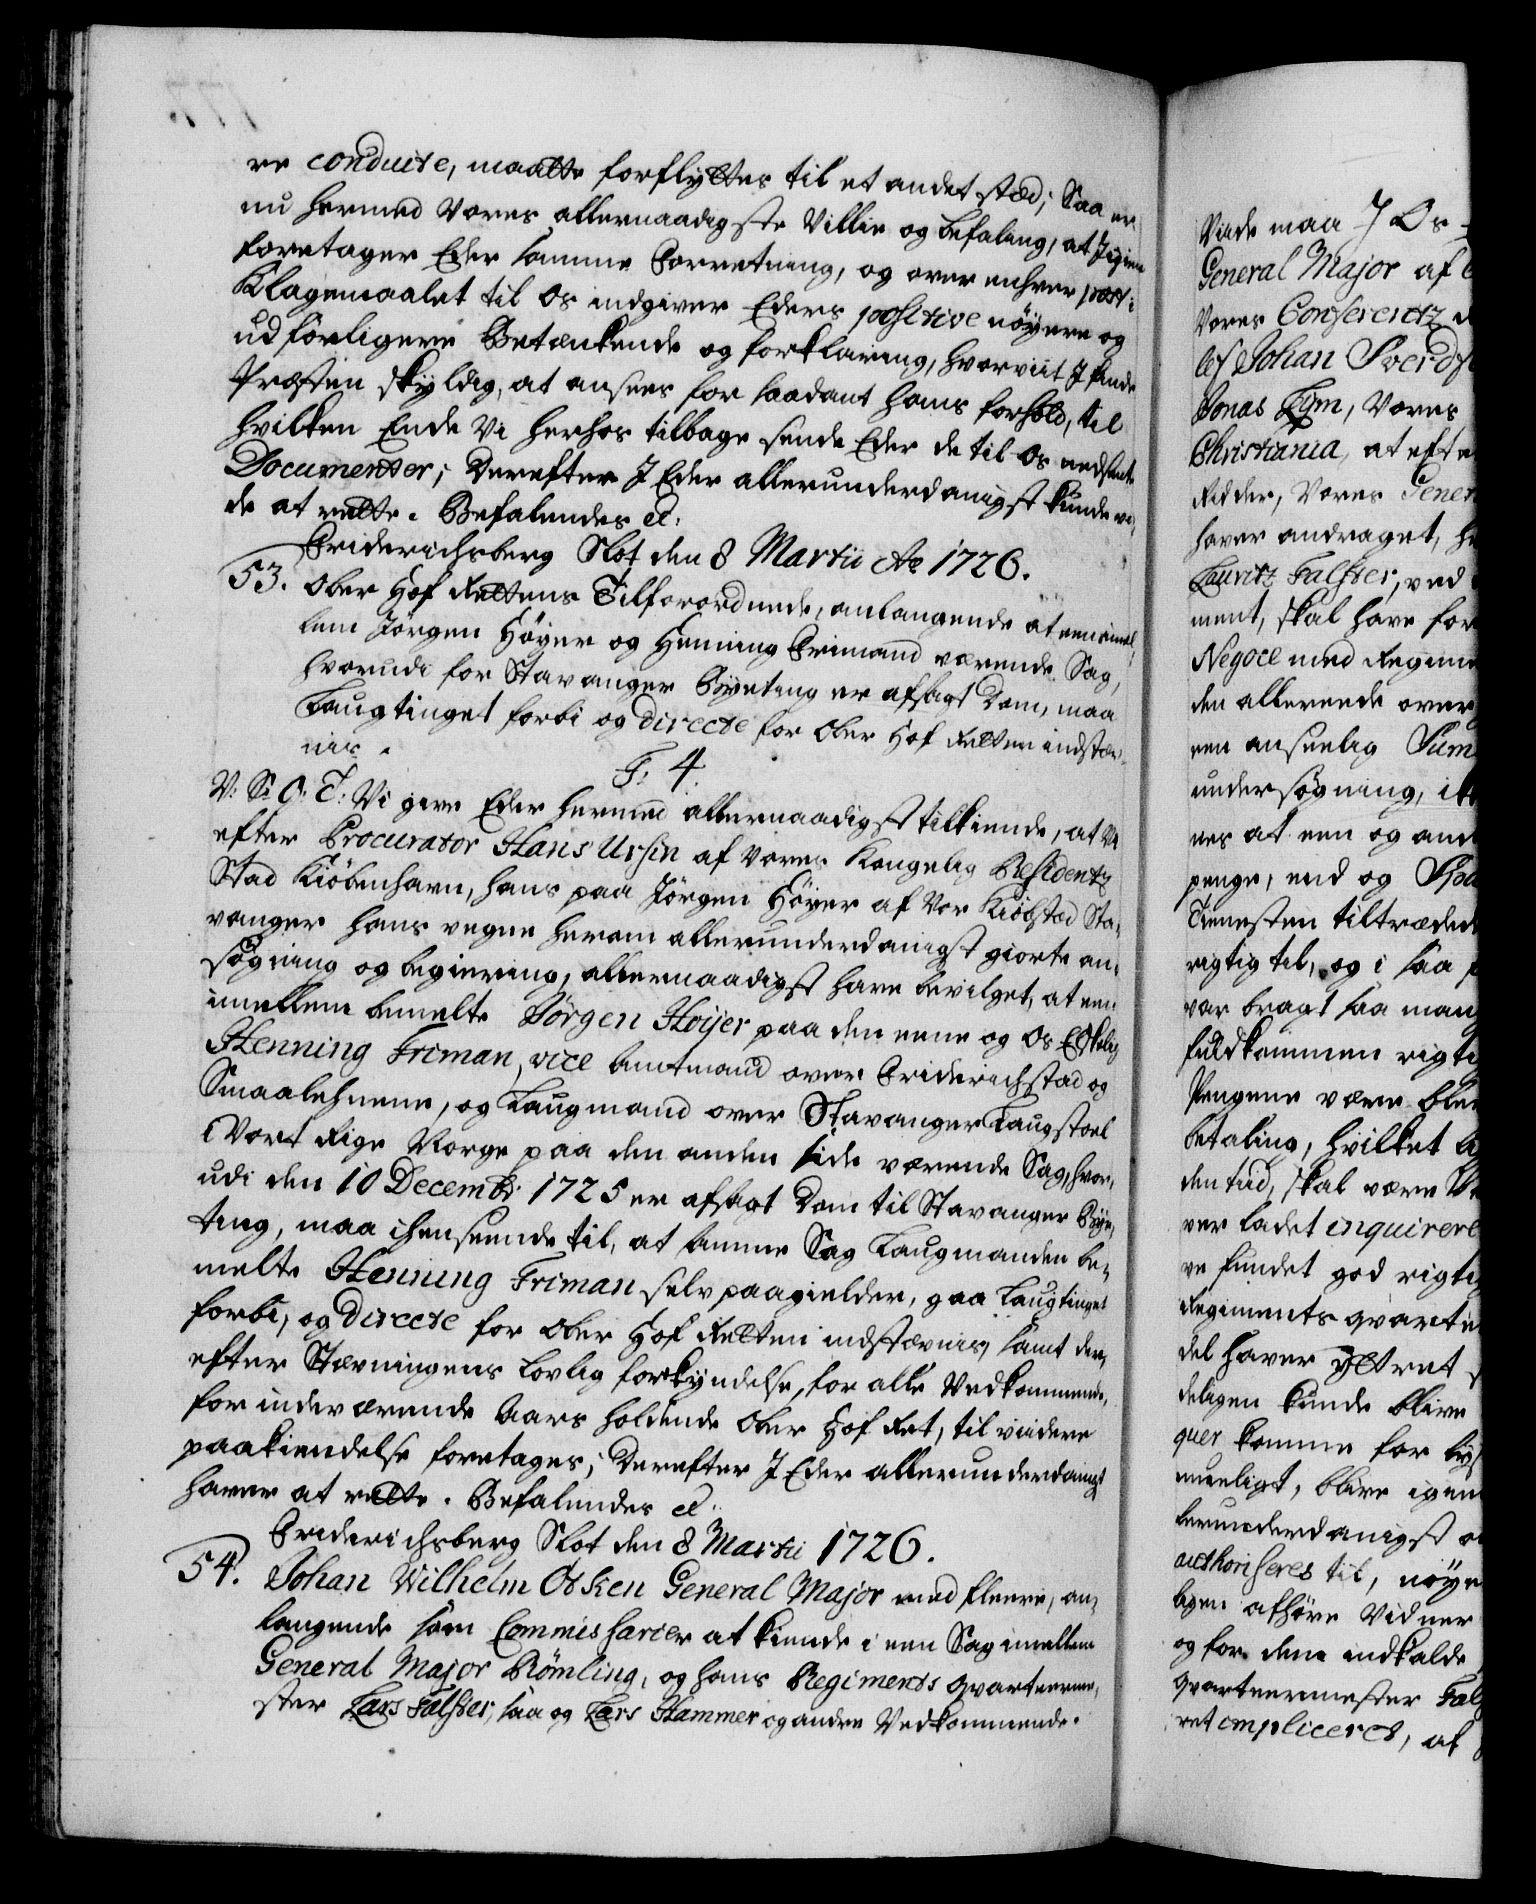 re conduite, maatte forflyttes til et andet stæd; Saa er
nu hermed Vores allernaadigste Villie og befaling, at J igien
foretager Eder samme Forretning, og over enhver post i
Klagemaalet til Os indgiver Eders positive nöyere og
udförligere Betænkende og forklaring, hvorviit J finde
Præsten skyldig, at ansees for saadant hans forhold, til
hvilken Ende Vi herhos tilbage sende Eder de til Os nedsendte
Documenter; Derefter J Eder allerunderdanigst kunde vi-
de at rette. Befalendes etc:
Friderichsberg Slot den 8 Martii Ao 1726.
53. Ober Hof Rettens Tilforordnede, anlangende at een imel-
lem Jörgen Höyer og Henning Frimand værende Sag,
hvorudi for Stavanger Byeting er afsagt Dom, maa
Laugtinget forbi og directe for Ober Hof Retten indstæv-
nis.
F. 4.
V: S: G: T: Vi give Eder hermed allernaadigst tilkiende, at Vi
efter Procurator Hans Ursin af Vores Kongelig Residentz
Stad Kiöbenhavn, hans paa Jörgen Höyer af Vor Kiöbstæd Sta-
vanger hans vegne herom allerunderdanigst giorte an-
sögning og begiering, allernaadigst have bevilget, at een
imellem bemelte Jörgen Hoijer paa den eene og Os Elskelig
Henning Friman, vice Amtmand over Friderichstad og
Smaalehnene, og Laugmand over Stavanger Laugstoel
i Vort Rige Norge paa den anden side værende Sag, hvor-
udi den 10 Decembr: 1725 er afsagt Dom til Stavanger Bye-
ting, maa i henseende til, at samme Sag Laugmanden be-
melte Henning Friman selv paagielder, gaa Laugtinget
forbi, og directe for Ober Hof Retten indstævnis, samt der-
efter Stævningens lovlig forkyndelse, for alle Vedkommende,
for indeværende Aars holdende Ober Hof Ret, til videre
paakiendelse foretages; Derefter J Eder allerunderdanigst
haver at rette. Befalendes etc:
Friderichsberg Slot den 8 Martii 1726.
54. Johan Wilhelm Otken General Major med fleere, an-
langende som Commissarier at kiende i een Sag imellem
General Major Römling, og hans Regiments qvarteerme-
ster Lars Falster, saa og Lars Hammer og andre Vedkommende.
Viide maa J Os
General Major af
Vores Conferentz
Johan Sverd
Jonas Lym, Vores
Christiania, at efte
Ridder, Vores Gener
haver andraget, h
Lauritz Falster, ved
ment, skal have for
Negoce med Regime
den allerede over
een anseelig Sum
undersögning, i
nes at een og and
penge, end og
Tienesten tiltræded
rigtig til, og i saa
var bragt saa man
fuldkommen rigti
Pengene være ble
betaling, hvilket
den tiid, skal være
ver ladet inquirere
ve fundet god rigti
Regiments qvarte
del haver yttret
deligen kunde blive
qver komme for ly
mueligt, blive igen
lerunderdanigst
authoriseres til, nöye
ligen afhöre Vidner
og for dem indkalde
qvarteermester Fal
ret impliceret, af